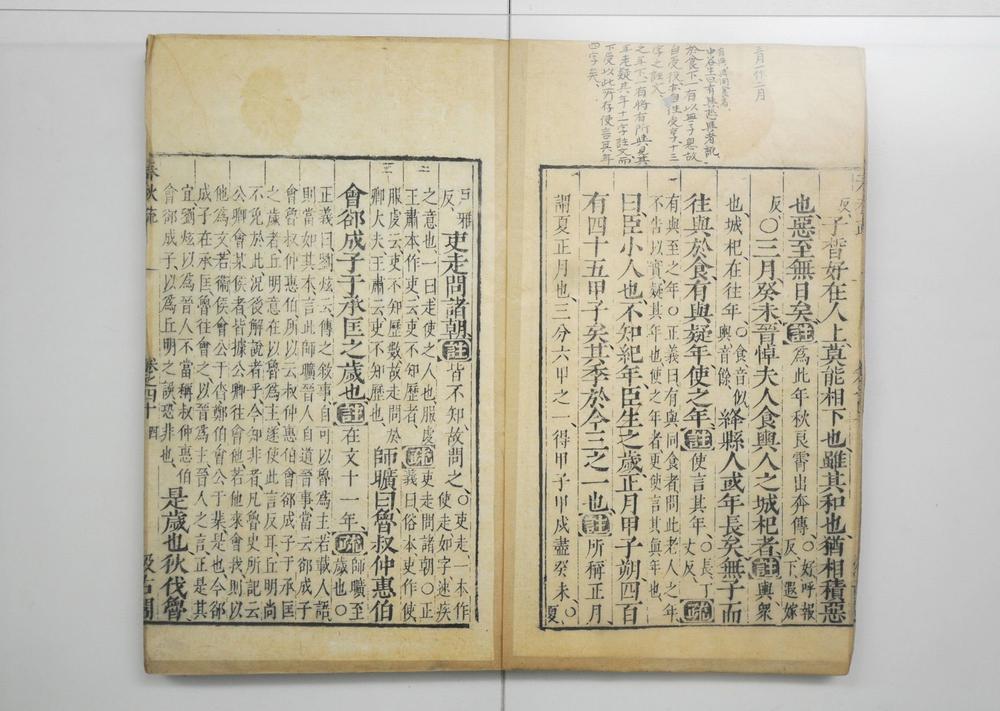 三月一作二月
於食下一有以無子息故
字之註文
年老疑其年十一字註文而
四字矣
反子晳好在人上莫能相下也雖其和也猶相積惡
也惡至無日矣註為此年秋良霄出奔傳○好呼報反下遐嫁
反○三月癸未晉悼夫人食輿人之城杞者註輿衆
也城杞在往年○食音似輿音餘絳縣人或年長矣無子而
往與於食有與疑年使之年註使言其年○長丁丈反疏
有與至之年○正義曰有與同食者問此老人之年
不告以實疑其年也使之年者更使言其眞年也
曰臣小人也不知紀年臣生之歲正月甲子朔四百
有四十五甲子矣其季於今三之一也註所稱正月
謂夏正月也三分六甲之一得甲子甲戌盡癸未○夏
戸雅反吏走問諸朝註皆不知故問之○吏走一本作使走如字速疾
之意也一曰走使之人也服虔
王肅本作吏云吏不知歷者疏吏走問諸朝○正
義曰俗本吏作使
服虔云吏不知歷數故走問於
卿大夫王肅云吏不知歷也師曠曰魯叔仲惠伯
會郤成子于承匡之歲也註在文十一年疏師曠至歲也○
正義曰劉炫云傳之敘事自可以魯爲主若載人語
則當如其本言此師曠晉人自道晉事當云郤成子
會魯叔仲惠伯所以云叔仲惠伯會郤成子于承匡
之歲者丘明意在以魯爲主遂使此言反耳丘明尚
不免於此況後解說者乎今知非者凡魯史所記云
公卿會某侯者皆據公卿往會他若他來會我則以
他爲文若衞侯會公于沓鄭伯會公于棐是也今郤
成子在承匡魯往會之以晉爲主晉人之言正是其
宜劉炫以爲晉人不當稱叔仲惠伯
會郤成子以爲丘明之誤恐非也是歲也狄伐魯
春秋疏
卷之四十
四
汲古閣